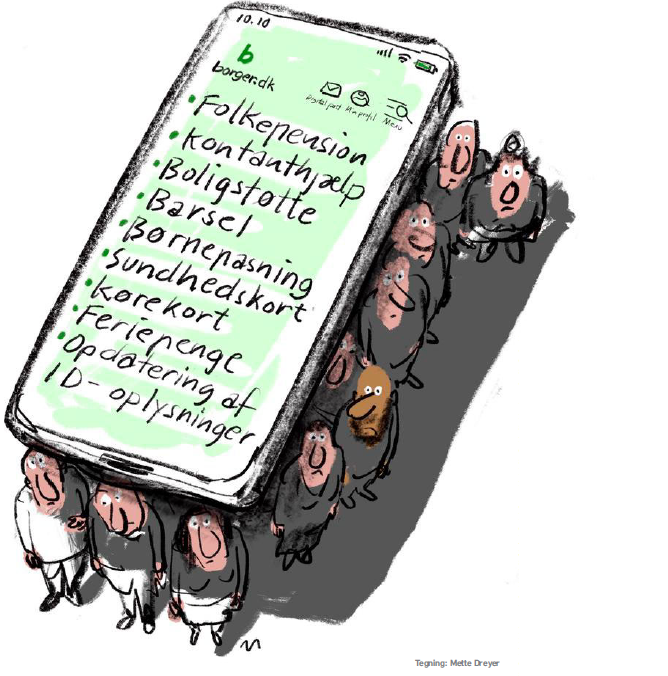 10.10
b
borger.dk
Digital post Min profil Menu
• Folkepension
• Kontanthjælp
• Boligstøtte
• Barsel
• Børnepasning
• Sundhedskort
• Kørekort
• Feriepenge
• Opdatering af
ID-oplysninger
Tegning: Mette Dreyer